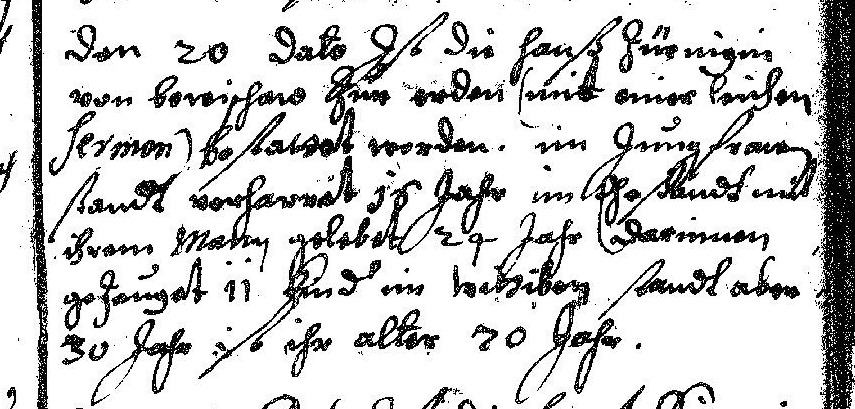 den 20 dato Ist die hanß Zürnigin
von bereischaw Zur erden (mit einer leichen
sermon) bestattet worden. im Jungfraw
standt verharret 16 Jahr im Ehestandt mit
ihrem Mann gelebet 24 Jahr (darinnen
geZeuget 11 Kind im wittiben standt aber
30 Jahr ist ihr alter 70 Jahr.